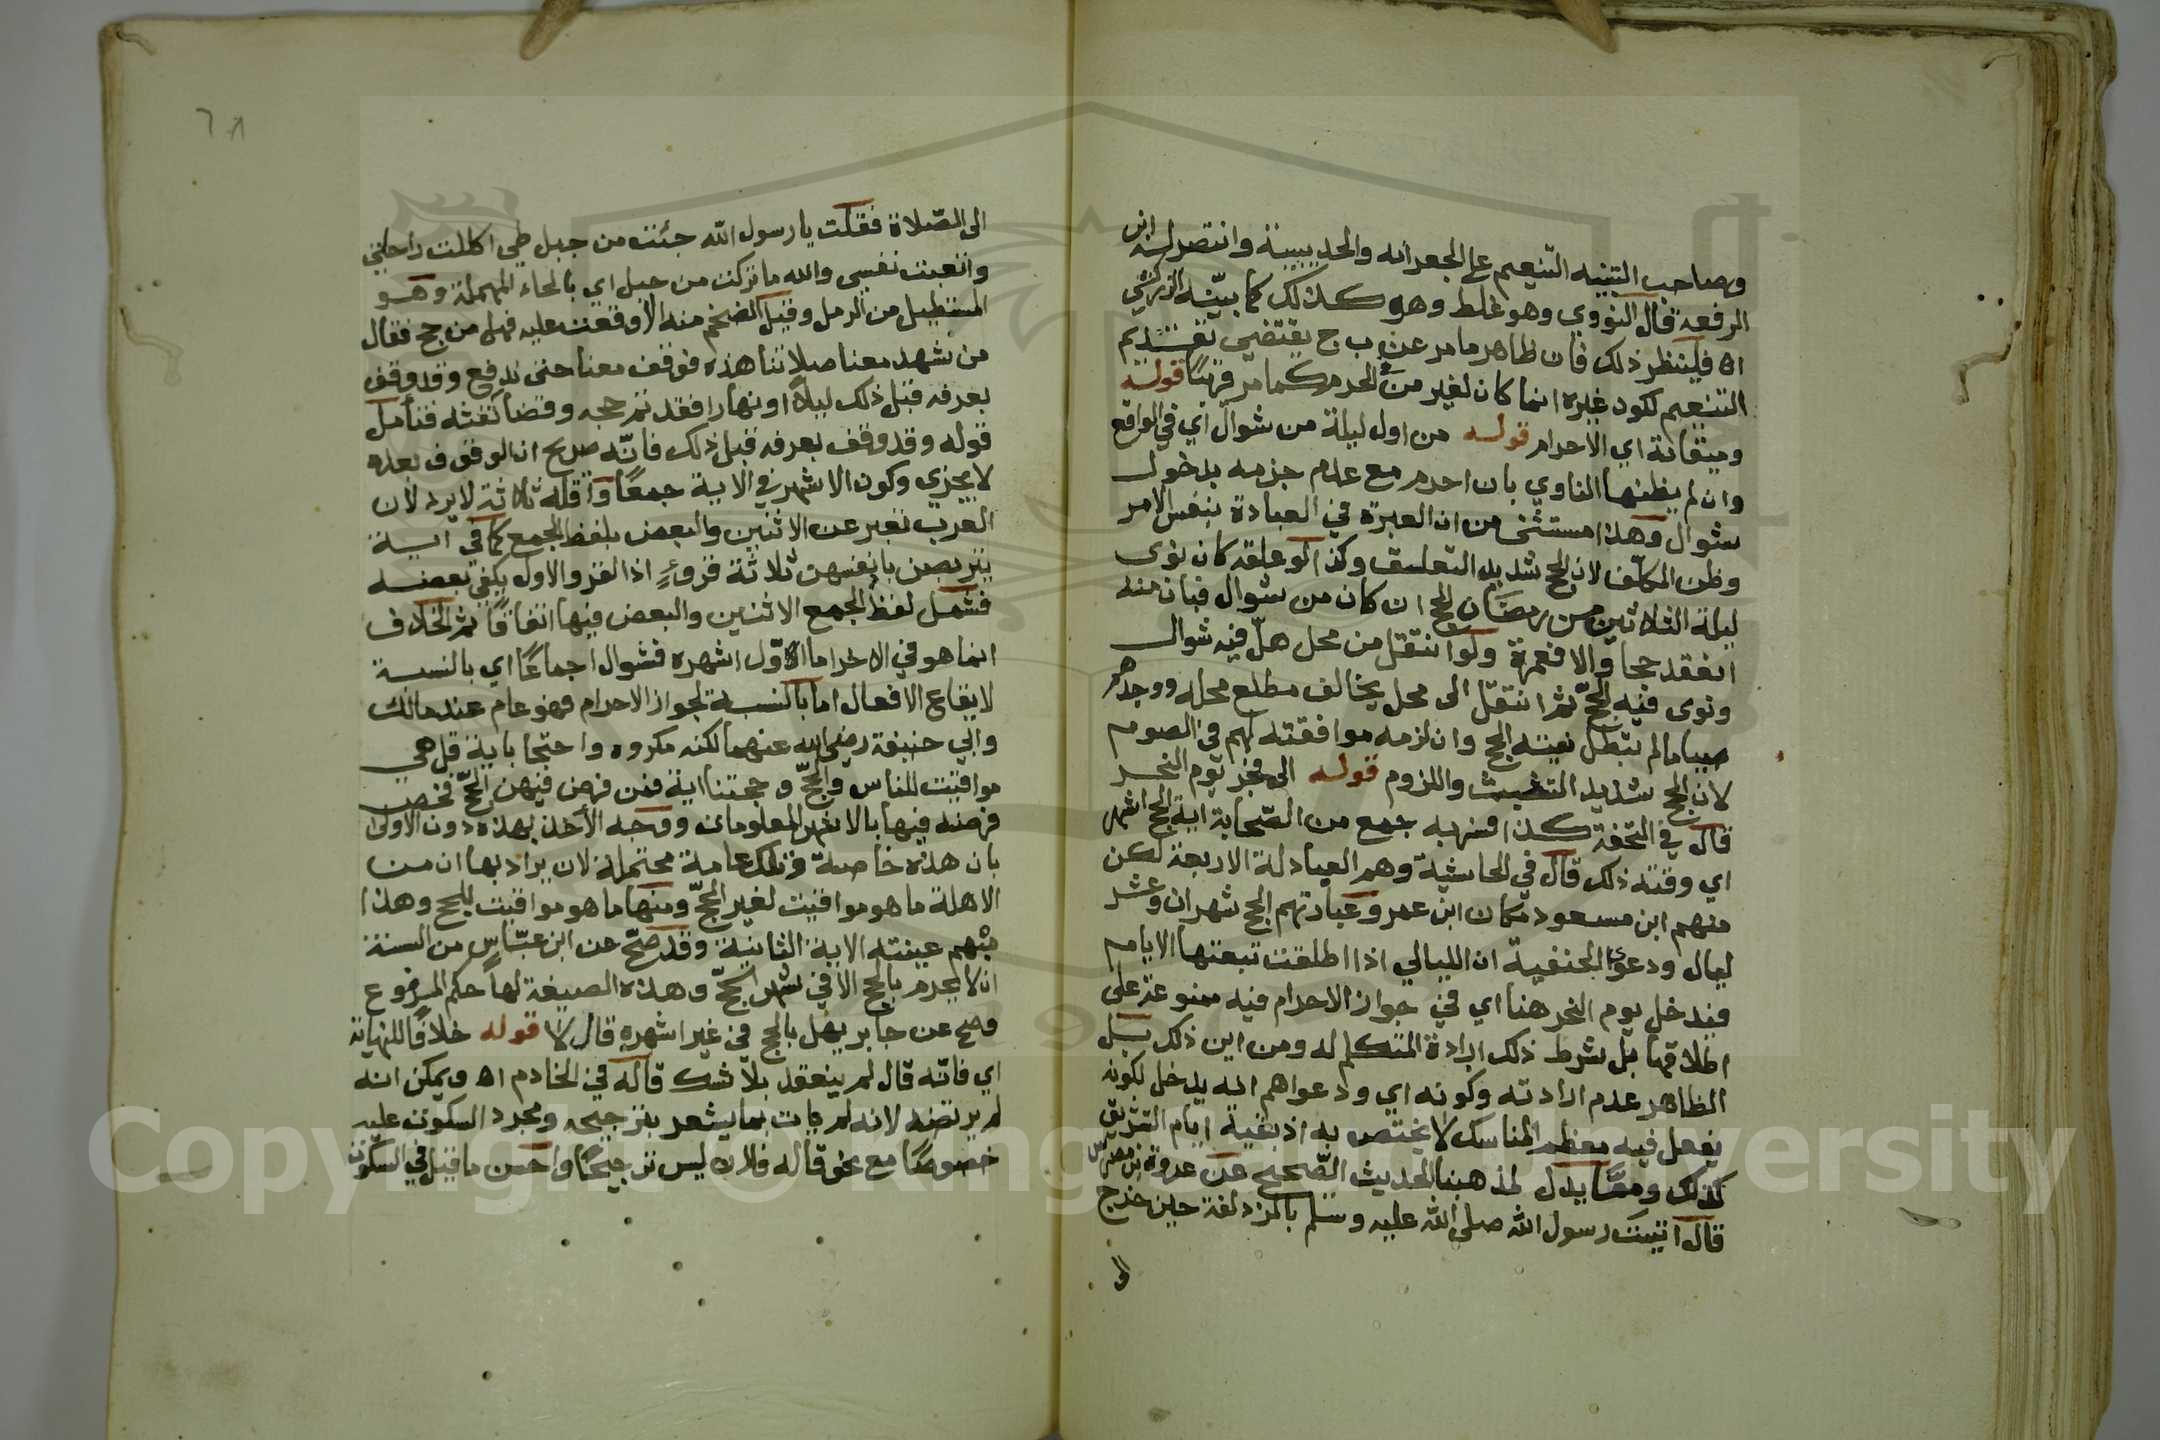 وصاحب التنبيه التنعيم على الجعرانه والحديبيه وانتصر له ابن
الرفعة قال النووي وهو غلط وهو كذلك كما بيّنه الزركشي
اه فلينظر ذلك فان ظاهر مامر عن ب ج يقتضي تقديم
التنعيم لكون غيره انما كان لغير من الحرم كما مر قريبًا قوله
وميقاته اي الاحرام قوله من اول ليلة من شوال اي في الواقع
وان لم يظنها الناوي بان احرم مع عدم جزمه بدخول
شوال وهذا مستثنى من ان العبرة في العبادة بنفس الامر
وظن المكلّف لان الحج شديد التعلق وكذا لو علقه كان نوى
ليلة الثلاثين من رمضان الحج ان كان من شوال فبان منه
انعقد حجا والا فعمرة ولو انتقل من محل هلّ فيه شوال
ونوى فيه الحجّ ثم انتقل الى محل يخالف مطلع محله ووجدهم
صياما لم تبطل نيته الحج وان لزمه موافقته لهم في الصوم
لان الحج شديد التشبث واللزوم قوله الى فجر يوم النحر
قال في التحفة كذا فسر به جمع من الصّحابة اية الحج اشهر
اي وقته ذلك قال في الحاشية وهم العبادلة الاربعة لكن
منهم ابن مسعود مكان ابن عمرو وعبارتهم الحج شهران وعشر
ليال ودعوى الحنفية ان الليالي اذا اطلقت تبعتها الايام
فيدخل يوم النحر هنا اي في جواز الاحرام فيه ممنوعة على
اطلاقها بل شرط ذلك ارادة المتكلم له ومن اين ذلك بل
الظاهر عدم ارادته وكونه اي ودعواهم انه يدخل لكونه
يفعل فيه معظم المناسك لا يختص به اذ بقية ايام التشريق
كذلك ومما يدل لمذهبنا الحديث الصّحيح عن عروة بن مضرس
قال اتيت رسول الله صلى الله عليه وسلم بالمزدلفة حين خرج
٦٨
الى الصّلاة فقلت يا رسول الله جئت من جبل طي اكللت راحلتي
واتعبت نفسي والله ما تركت من حبل اي بالحاء المهملة وهو
المستطيل من الرمل وقيل الضخم منه الا وقفت عليه فهل من حج فقال
من شهد معنا صلاتنا هذه فوقف معنا حتى ندفع وقد وقف
بعرفه قبل ذلك ليلًا او نهارا فقد تم حجه وقضا تفثه فتأمل
قوله وقد وقف بعرفه قبل ذلك فانّه صريح ان الوقوف بعده
لا يجزي وكون الاشهر في الاية جمعًا واقله ثلاثة لا يرد لان
العرب تعبر عن الاثنين والبعض بلفظ الجمع كما في اية
يتربصن بانفسهن ثلاثة قروءٍ اذ القرو الاول يكفي بعضه
فشمل لفظ الجمع الاثنين والبعض فيها اتفاقًا ثم الخلاف
انما هو في الاحرام اما اوّل اشهره فشوال اجماعًا اي بالنسبة
لايقاع الافعال اما بالنسبة لجواز الاحرام فهو عام عند مالك
وابي حنيفة رضي الله عنهما لكنه مكروه واحتجا باية قل هي
مواقيت للناس والحجّ وحجتنا اية فمن فرض فيهن الحجّ فخص
فرضه فيها بالاشهر المعلومات ووجه الأخذ بهذه دون الاولى
بان هذه خاصة وتلك عامة محتملة لان يراد بها ان من
الاهلة ما هو مواقيت لغير الحجّ ومنها ما هو مواقيت للحج وهذا
مبهم عينته الاية الثانية وقد صحّ عن ابن عبّاس من السنة
ان لا يحرم بالحج الا في شهر الحجّ وهذه الصيغة لها حكم المرفوع
وصح عن جابر يهل بالحج في غير اشهره قال لا قوله خلافًا للنهاية
اي فانّه قال لم ينعقد بلا شك قاله في الخادم اه ويمكن انه
لم يرتضه لانه لم يات بما يشعر بترجيحه ومجرد السكوت عليه
خصوصًا مع نحو قاله فلان ليس ترجيحًا واحسن ما قيل في السكوت
Copyright © King Saud University